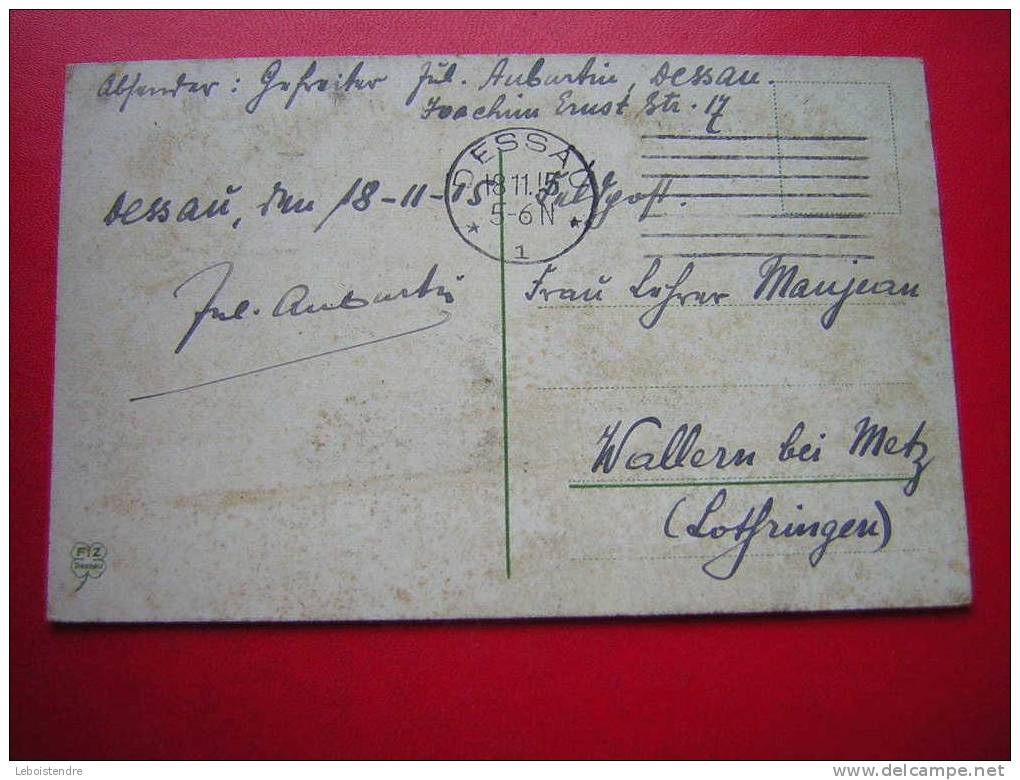 Absender: Gefreiter Jul. Aubertin, Dessau.
Joachim Ernst Str. 17
DESSAU
18.11.15
5-6 N
1
Dessau, den 18-11-15
Feldpost.
Jul. Aubertin
Frau Lehrer Manjean
Wallern bei Metz
(Lothringen)
FIZ
Dessau
Leboistendre
delcampe.net